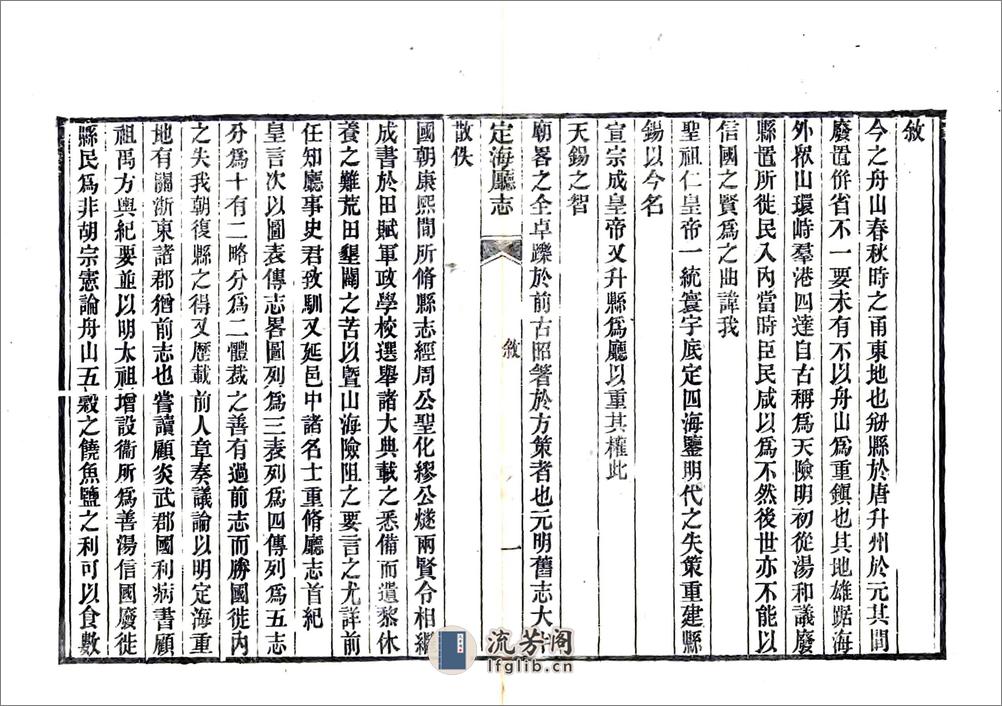 敘
今之舟山春秋時之甬東地也剏縣於唐升州於元其間
廢置倂省不一要未有不以舟山爲重鎭也其地雄踞海
外秋山環峙羣港四達自古稱爲天險明初從湯和議廢
縣置所徙民入內當時臣民咸以爲不然後世亦不能以
信國之賢爲之曲諱我
聖祖仁皇帝一統寰宇底定四海鑒明代之失策重建縣
錫以今名
宣宗成皇帝又升縣爲廳以重其權此
天錫之智
廟畧之全卓躒於前古昭箸於方策者也元明舊志大
定海廳志
敘
一
散佚
國朝康熙間所脩縣志經周公聖化繆公燧兩賢令相繼
成書於田賦軍政學校選舉諸大典載之悉備而遺黎休
養之難荒田墾闢之苦以暨山海險阻之要言之尤詳前
任知廳事史君致馴又延邑中諸名士重脩廳志首紀
皇言次以圖表傳志畧圖列爲三表列爲四傳列爲五志
分爲十有二略分爲二體裁之善有過前志而勝國徙內
之失我朝復縣之得又歷載前人章奏議論以明定海重
地有關浙東諸郡猶前志也嘗讀顧炎武郡國利病書顧
祖禹方輿紀要並以明太祖增設衞所爲善湯信國廢徙
縣民爲非胡宗憲論舟山五穀之饒魚鹽之利可以食數
流芳阁
lfglib.cn